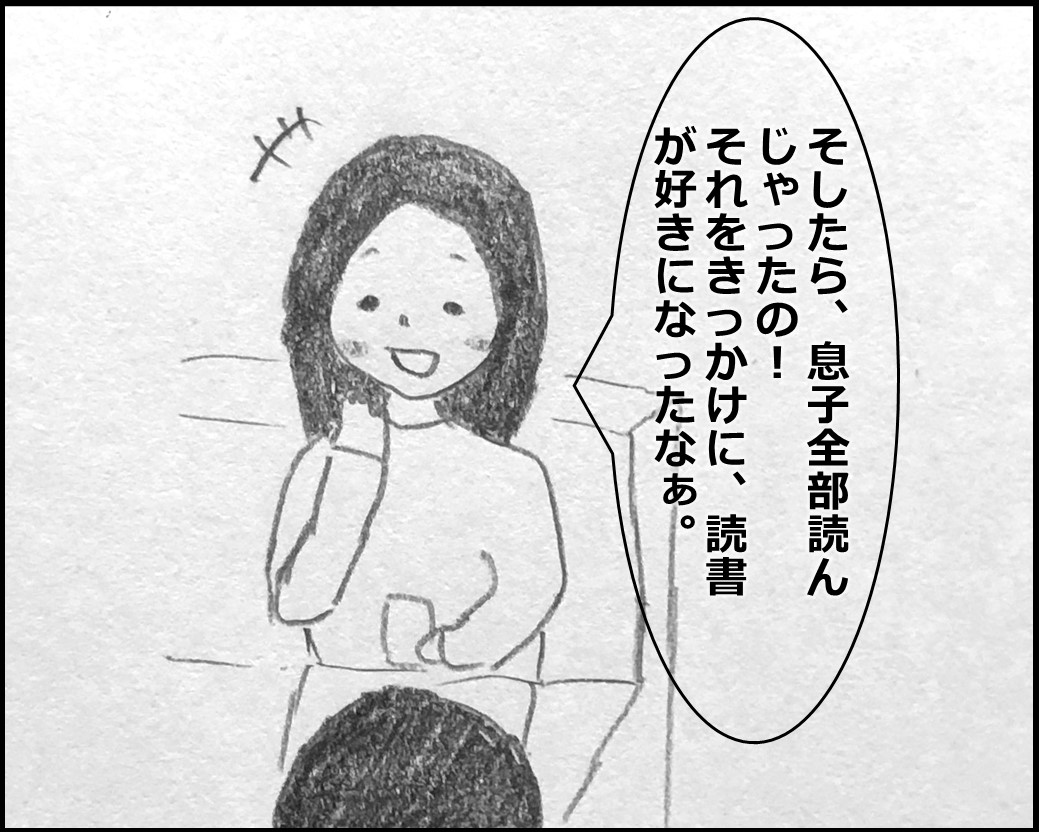 そしたら、息子全部読ん
じゃったの！
それをきっかけに、読書
が好きになったなぁ。